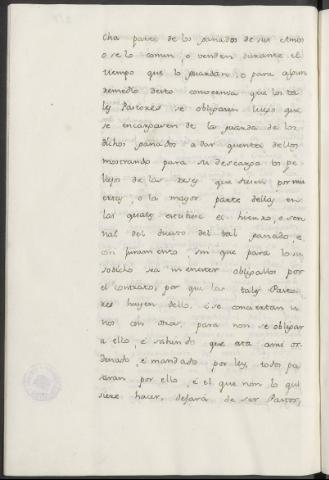 cha parte de los ganados de sus Amos
o se lo comen, o venden durante el
tiempo que lo guardan, o para algun
remedio desto convernia que los ta
les Pastores se obligasen luego que
se encargaren de la guarda de los
dichos ganados a dar quenta dellos
mostrando para su descargo los pe
llejos de las reses que dieren por mu
ertas, o la mayor parte dellas en
las quales estubiere el hierro, o sen
nal del dueno del tal ganado, e
con juramento, sin que para lo su
sodicho sea menester obligallos por
el contrato, por que los tales Pasto
res huyen dello, e se conciertan u
nos con otros, para non se obligar
a ello, e sabiendo que esta ansi or
denado, e mandado por ley, todos pa
saran por ello, e el que non lo qui
siere hacer, dejará de ser Pastor,